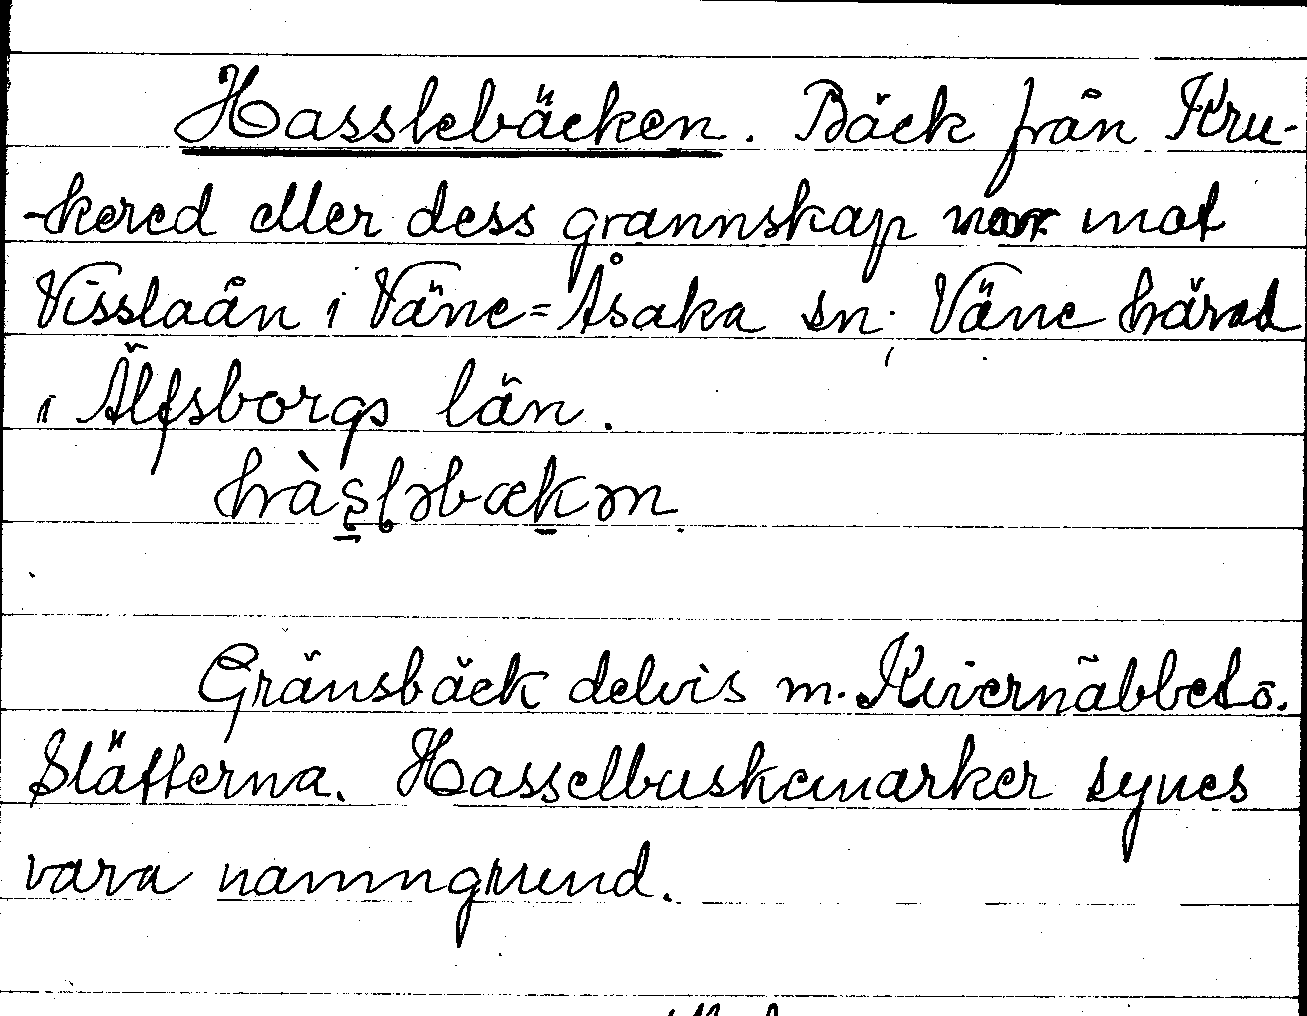 Hasslebäcken. Bäck från Kru-
-kered eller dess grannskap mot
Visslaån i Väne=Åsaka sn, Väne härad
i Älfsborgs län.
Gränsbäck delvis m. Kviernäbbet o.
Slätterna. Hasselbuskemarker synes
vara namngrund.